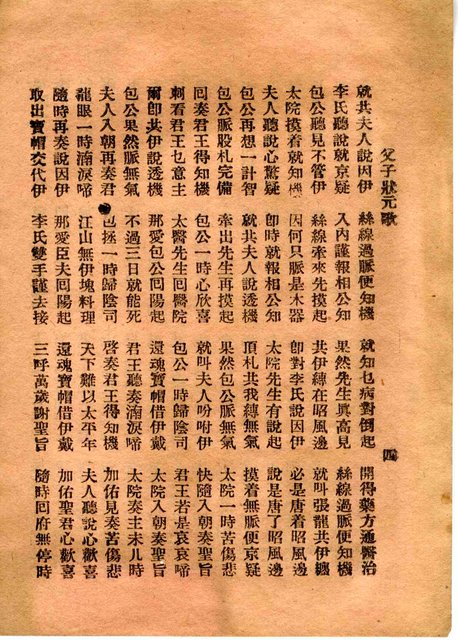 父子狀元歌 四
就共夫人說因伊 絲線過脈便知機 就知乜病對倒起 開得藥方通醫治
李氏聽說就京疑 入內謹報相公知 果然先生真高見 絲線過脈便知機
包公聽見不管伊 絲線牽來先摸起 共伊縛在昭風邊 就叫張龍共伊纏
太院摸着就知機 因何只脈是木器 卽對李氏說因伊 必是唐着昭風邊
夫人聽說心驚疑 卽時就報相公知 太院先生有說起 說是唐了昭風邊
包公再想一計智 就共夫人說透機 頂札共我縛無氣 摸着無脈便京疑
包公脈股札完備 牽出先生再摸起 果然包公脈無氣 太院一時苦傷悲
回奏君王得知機 包公一時心欣喜 就叫夫人吩咐伊 快隨入朝奏聖旨
刺看君王乜意主 太醫先生回醫院 包公一時歸陰司 君王若是哀哀啼
爾卽共伊說透機 不過包公回陽起 還魂寶帽借伊戴 太院入朝奏聖旨
包公果然脈無氣 不過三日就能死 君王聽奏湳淚啼 太院奏主未几時
夫人入朝再奏君 拯一時歸陰司 啓奏君王得知機 加佑見奏苦傷悲
龍眼一時湳淚啼 江山無伊塊料理 天下難以太平年 夫人聽說心歡喜
隨時再奏說因伊 那愛臣夫回陽起 還魂寶帽借伊戴 加佑聖君心歡喜
取出寶帽交代伊 李氏雙手謹去接 三呼萬歲謝聖旨 隨時回府無停時